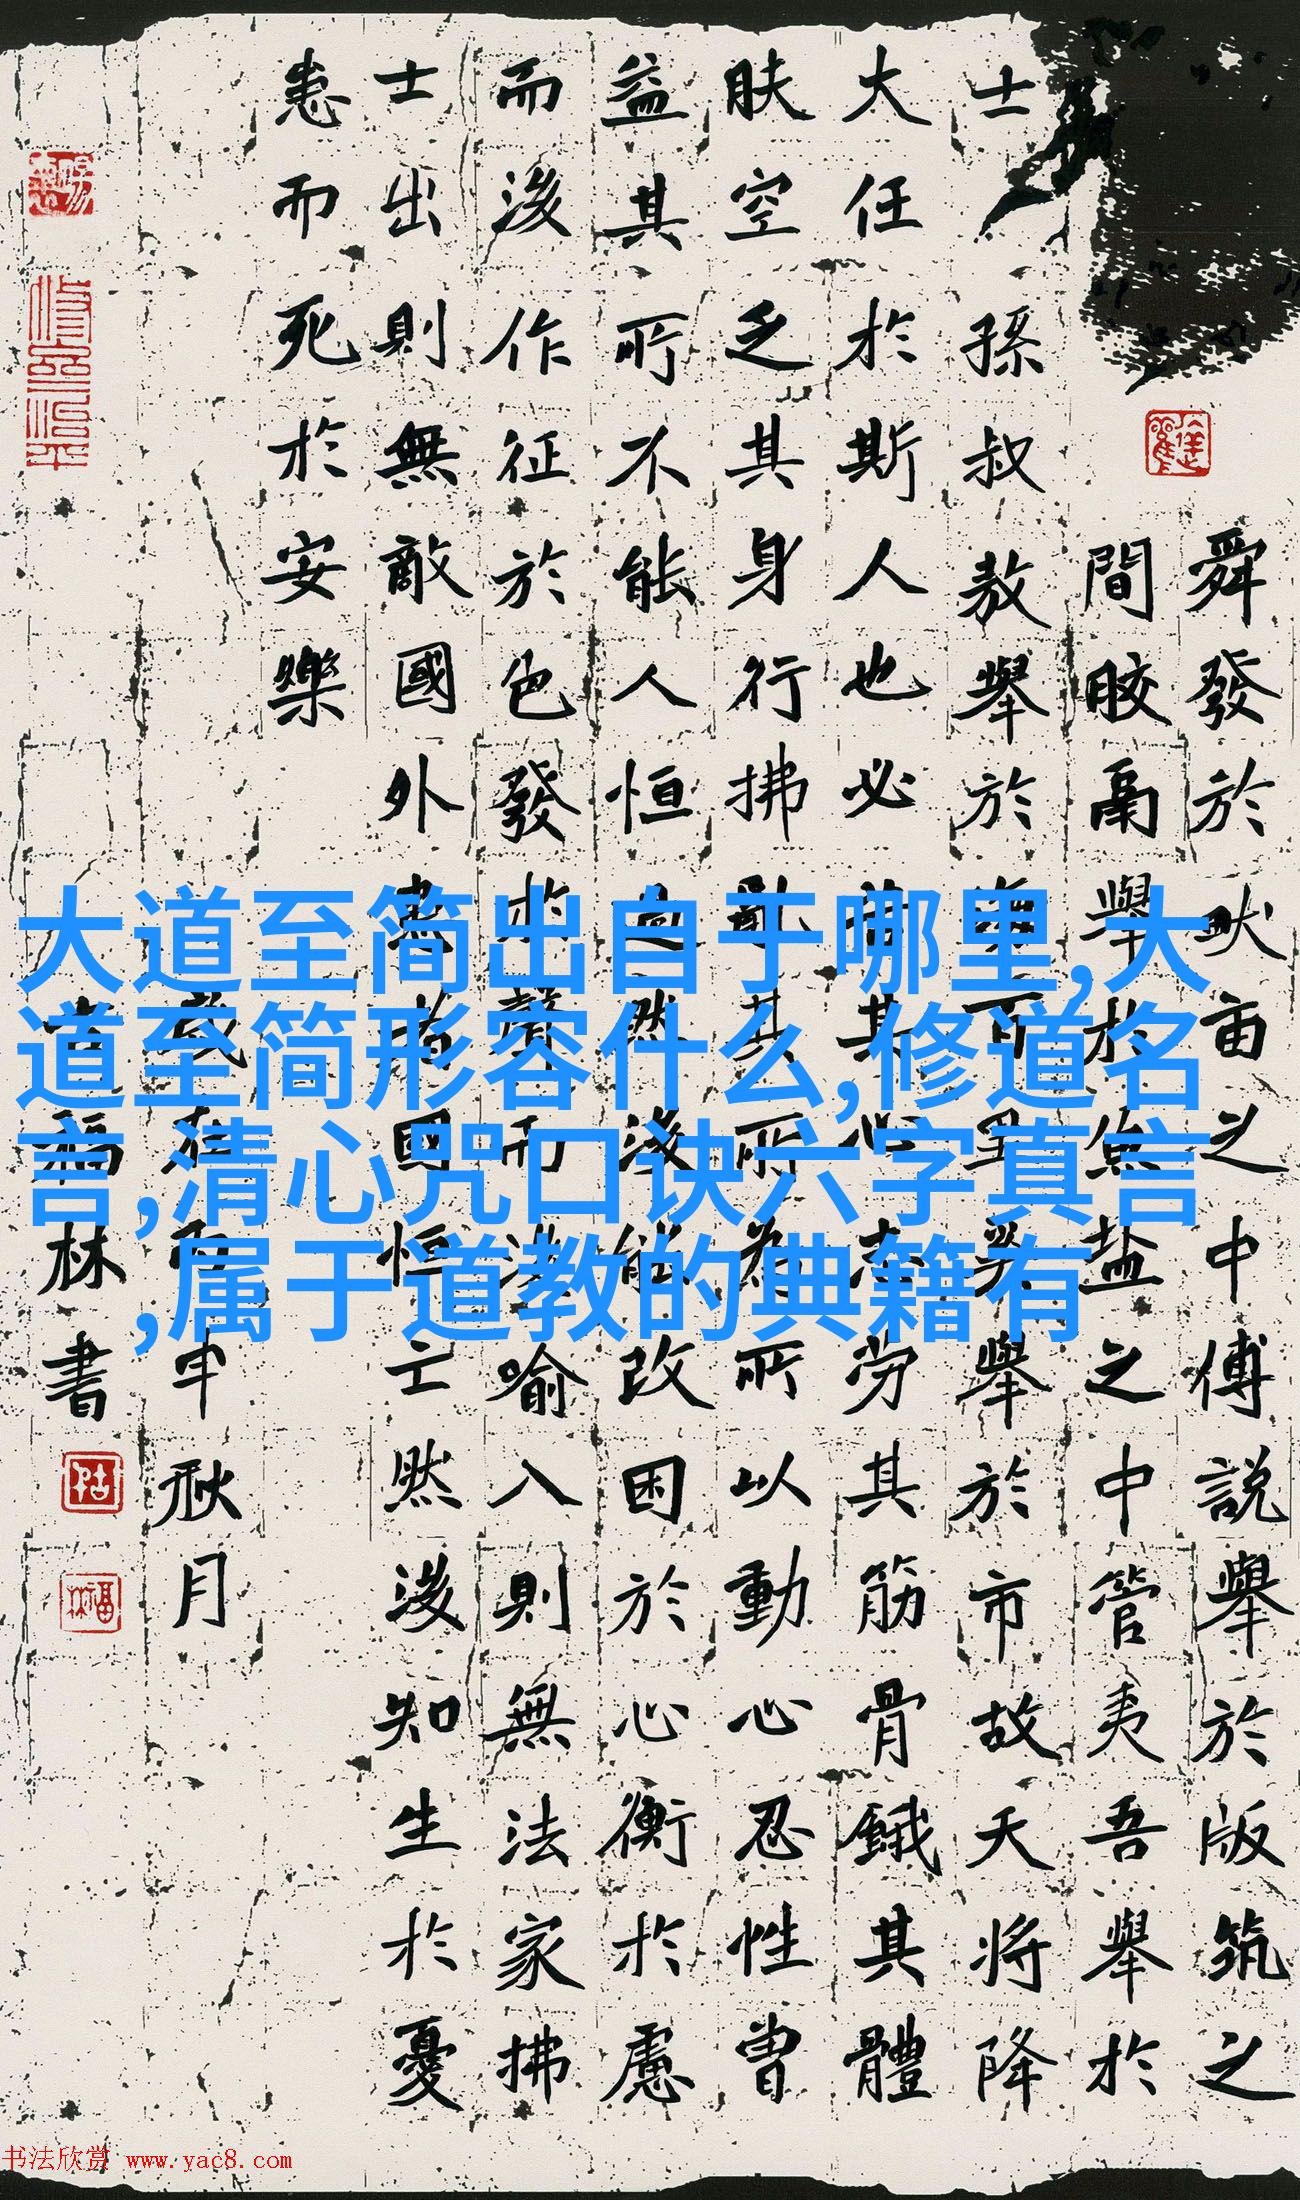 舜發於畎亩之中傅説舉於版筑之
間膠鬲舉於魚盐之中管夷吾舉於
士孫叔敖舉於海百里奚舉於市故天將降
大任於斯人也必苦其心志劳其筋骨餓其體
肤空乏其身行拂亂其所為所以動心忍性曾
益其所不能人恒過然後能改困於心衡於慮
而後作征於色發於聲而後喻入則無法家拂
士出則無敵國外患者國恒亡然後知生於憂
患而死於安樂
歲在丙申秋月
福林書
大道至简出自于哪里,大
道至简形容什么,修道名
言,清心咒口诀六字真言
,属于道教的典籍有
书法欣赏 www.yac8.com